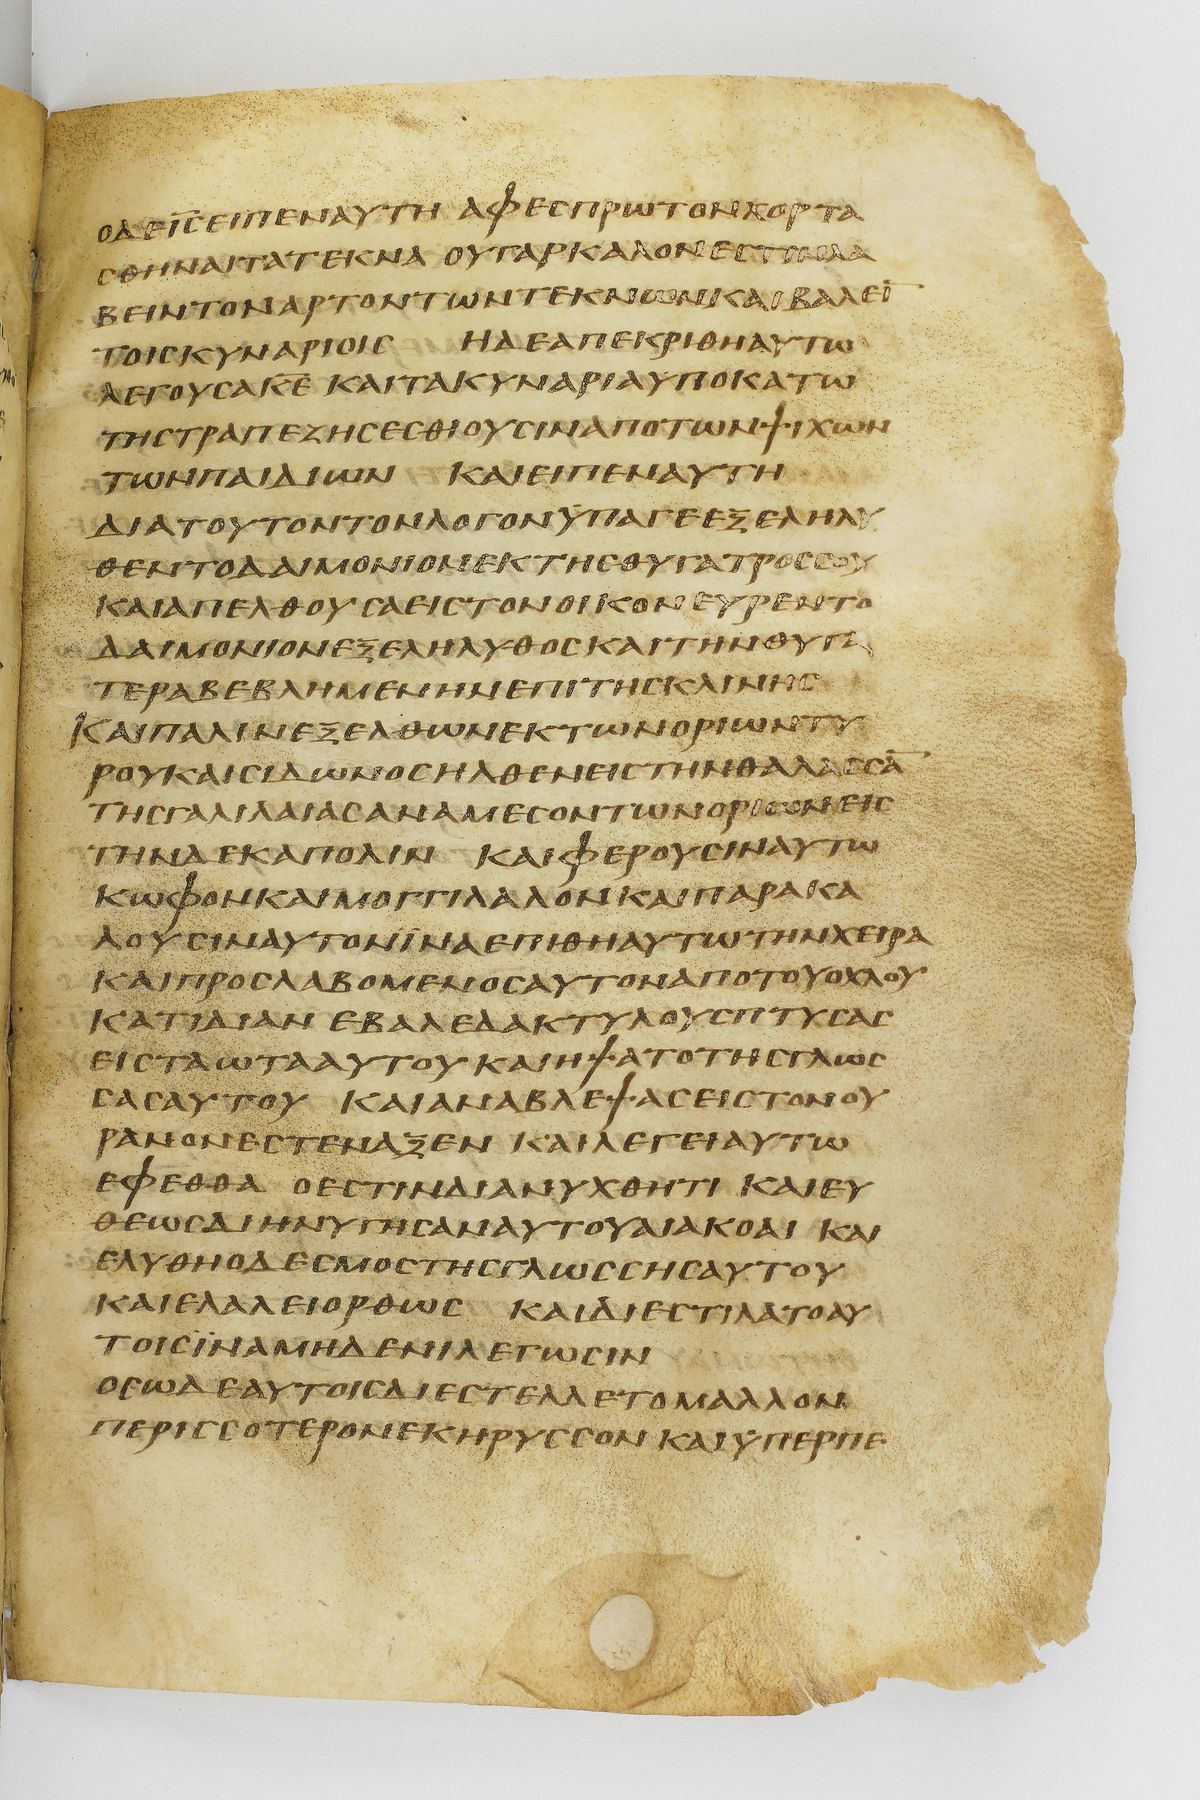 ΟΔΕΙ̅Σ̅ΕΙΠΕΝΑΥΤΗ ΑΦΕΣΠΡΩΤΟΝΧΟΡΤΑ
ΣΘΗΝΑΙΤΑΤΕΚΝΑ ΟΥΓΑΡΚΑΛΟΝΕΣΤΙΝΛΑ
ΒΕΙΝΤΟΝΑΡΤΟΝΤΩΝΤΕΚΝΩΝΚΑΙΒΑΛΕΙ̅
ΤΟΙΣΚΥΝΑΡΙΟΙΣ ΗΔΕΑΠΕΚΡΙΘΗΑΥΤΩ
ΛΕΓΟΥΣΑΚ̅Ε̅ ΚΑΙΤΑΚΥΝΑΡΙΑΥΠΟΚΑΤΩ
ΤΗΣΤΡΑΠΕΖΗΣΕΣΘΙΟΥΣΙΝΑΠΟΤΩΝΨΙΧΩΝ
ΤΩΝΠΑΙΔΙΩΝ ΚΑΙΕΙΠΕΝΑΥΤΗ
ΔΙΑΤΟΥΤΟΝΤΟΝΛΟΓΟΝΫΠΑΓΕΕΞΕΛΗΛΥ
ΘΕΝΤΟΔΑΙΜΟΝΙΟΝΕΚΤΗΣΘΥΓΑΤΡΟΣΣΟΥ
ΚΑΙΑΠΕΛΘΟΥΣΑΕΙΣΤΟΝΟΙΚΟΝΕΥΡΕΝΤΟ
ΔΑΙΜΟΝΙΟΝΕΞΕΛΗΛΥΘΟΣΚΑΙΤΗΝΘΥΓΑ
ΤΕΡΑΒΕΒΛΗΜΕΝΗΝΕΠΙΤΗΣΚΛΙΝΗΣ
ΚΑΙΠΑΛΙΝΕΞΕΛΘΩΝΕΚΤΩΝΟΡΙΩΝΤΥ
ΡΟΥΚΑΙΣΙΔΩΝΟΣΗΛΘΕΝΕΙΣΤΗΝΘΑΛΑΣΣΑ̅
ΤΗΣΓΑΛΙΛΑΙΑΣΑΝΑΜΕΣΟΝΤΩΝΟΡΙΩΝΕΙΣ
ΤΗΝΔΕΚΑΠΟΛΙΝ ΚΑΙΦΕΡΟΥΣΙΝΑΥΤΩ
ΚΩΦΟΝΚΑΙΜΟΓΓΙΛΑΛΟΝΚΑΙΠΑΡΑΚΑ
ΛΟΥΣΙΝΑΥΤΟΝΪΝΑΕΠΙΘΗΑΥΤΩΤΗΝΧΕΙΡΑ
ΚΑΙΠΡΟΣΛΑΒΟΜΕΝΟΣΑΥΤΟΝΑΠΟΤΟΥΟΧΛΟΥ
ΚΑΤΙΔΙΑΝ ΕΒΑΛΕΔΑΚΤΥΛΟΥΣΠΤΥΣΑΣ
ΕΙΣΤΑΩΤΑΑΥΤΟΥΚΑΙΗΨΑΤΟΤΗΣΓΛΩΣ
ΣΑΣΑΥΤΟΥ ΚΑΙΑΝΑΒΛΕΨΑΣΕΙΣΤΟΝΟΥ
ΡΑΝΟΝΕΣΤΕΝΑΞΕΝ ΚΑΙΛΕΓΕΙΑΥΤΩ
ΕΦΕΘΘΑ ΟΕΣΤΙΝΔΙΑΝΥΧΘΗΤΙ ΚΑΙΕΥ
ΘΕΩΣΔΙΗΝΥΓΗΣΑΝΑΥΤΟΥΑΙΑΚΟΑΙ ΚΑΙ
ΕΛΥΘΗΟΔΕΣΜΟΣΤΗΣΓΛΩΣΣΗΣΑΥΤΟΥ
ΚΑΙΕΛΑΛΕΙΟΡΘΩΣ ΚΑΙΔΙΕΣΤΙΛΑΤΟΑΥ
ΤΟΙΣΪΝΑΜΗΔΕΝΙΛΕΓΩΣΙΝ
ΟΣΩΔΕΑΥΤΟΙΣΔΙΕΣΤΕΛΛΕΤΟΜΑΛΛΟΝ
ΠΕΡΙΣΣΟΤΕΡΟΝΕΚΗΡΥΣΣΟΝ ΚΑΙΫΠΕΡΠΕ